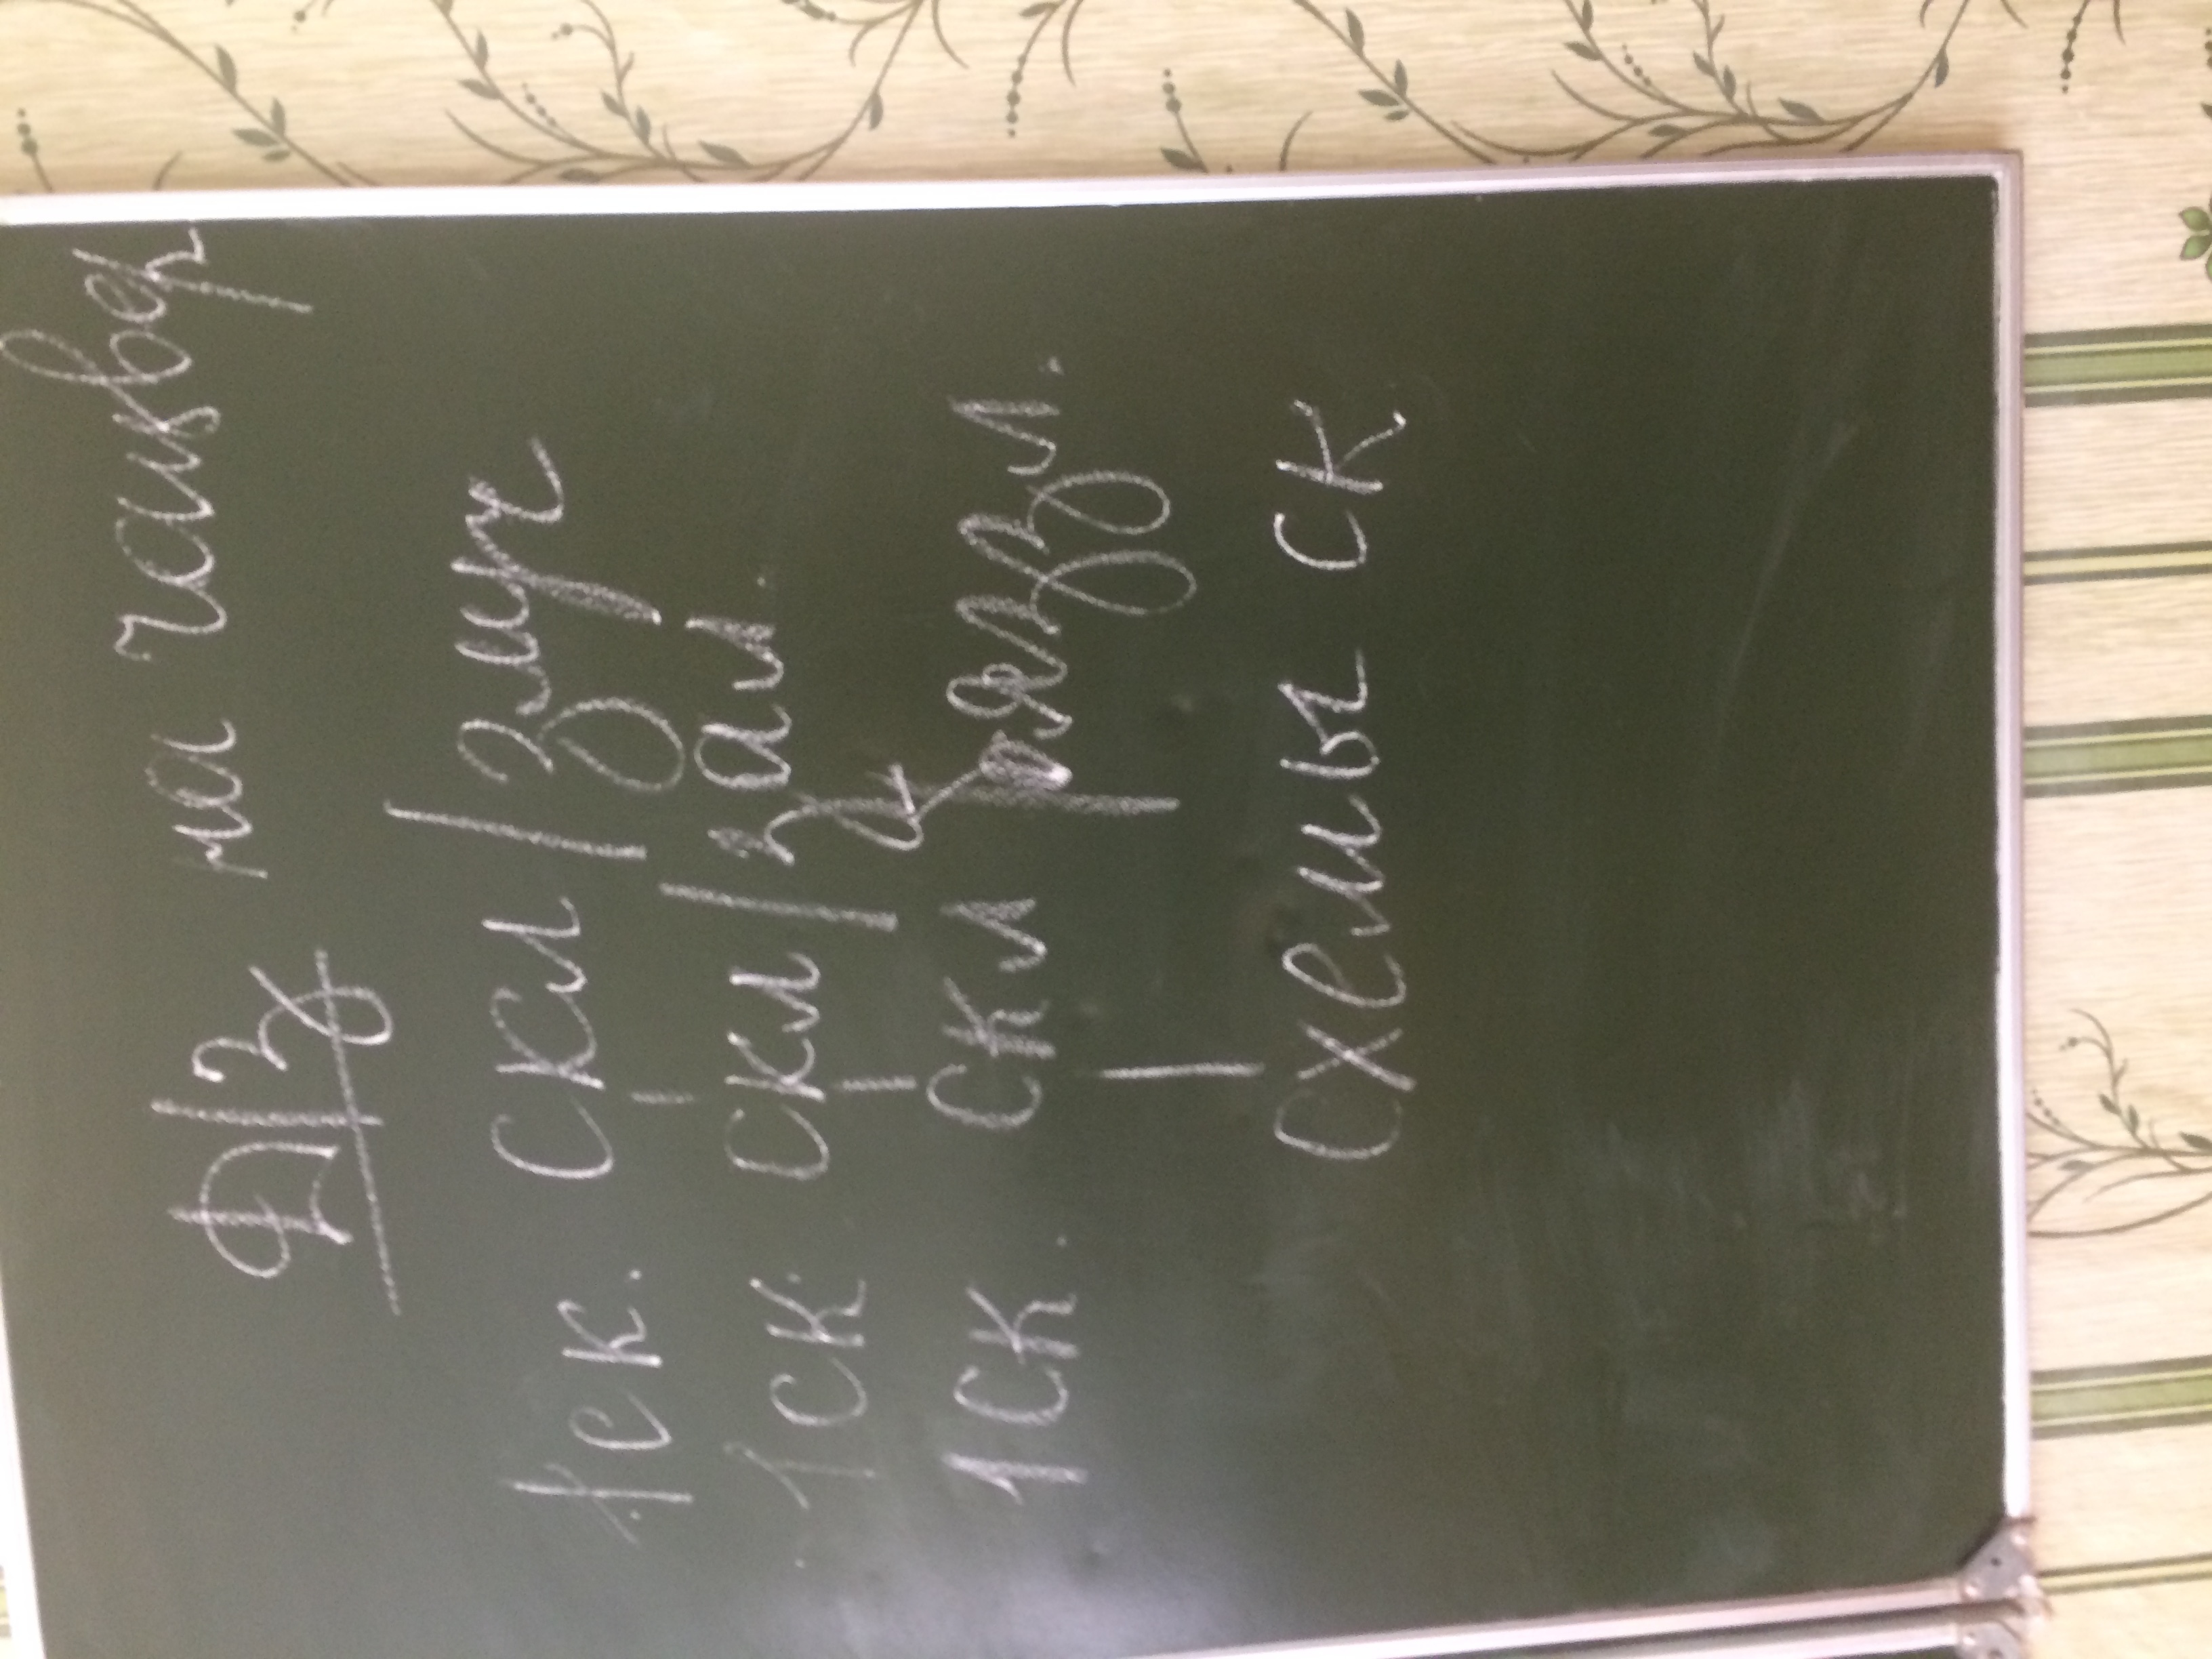 Д/з на чацвер
1 ск. скл/злуч
1 ск. скл/зал.
1 ск. скл бяззл.
схемы ск